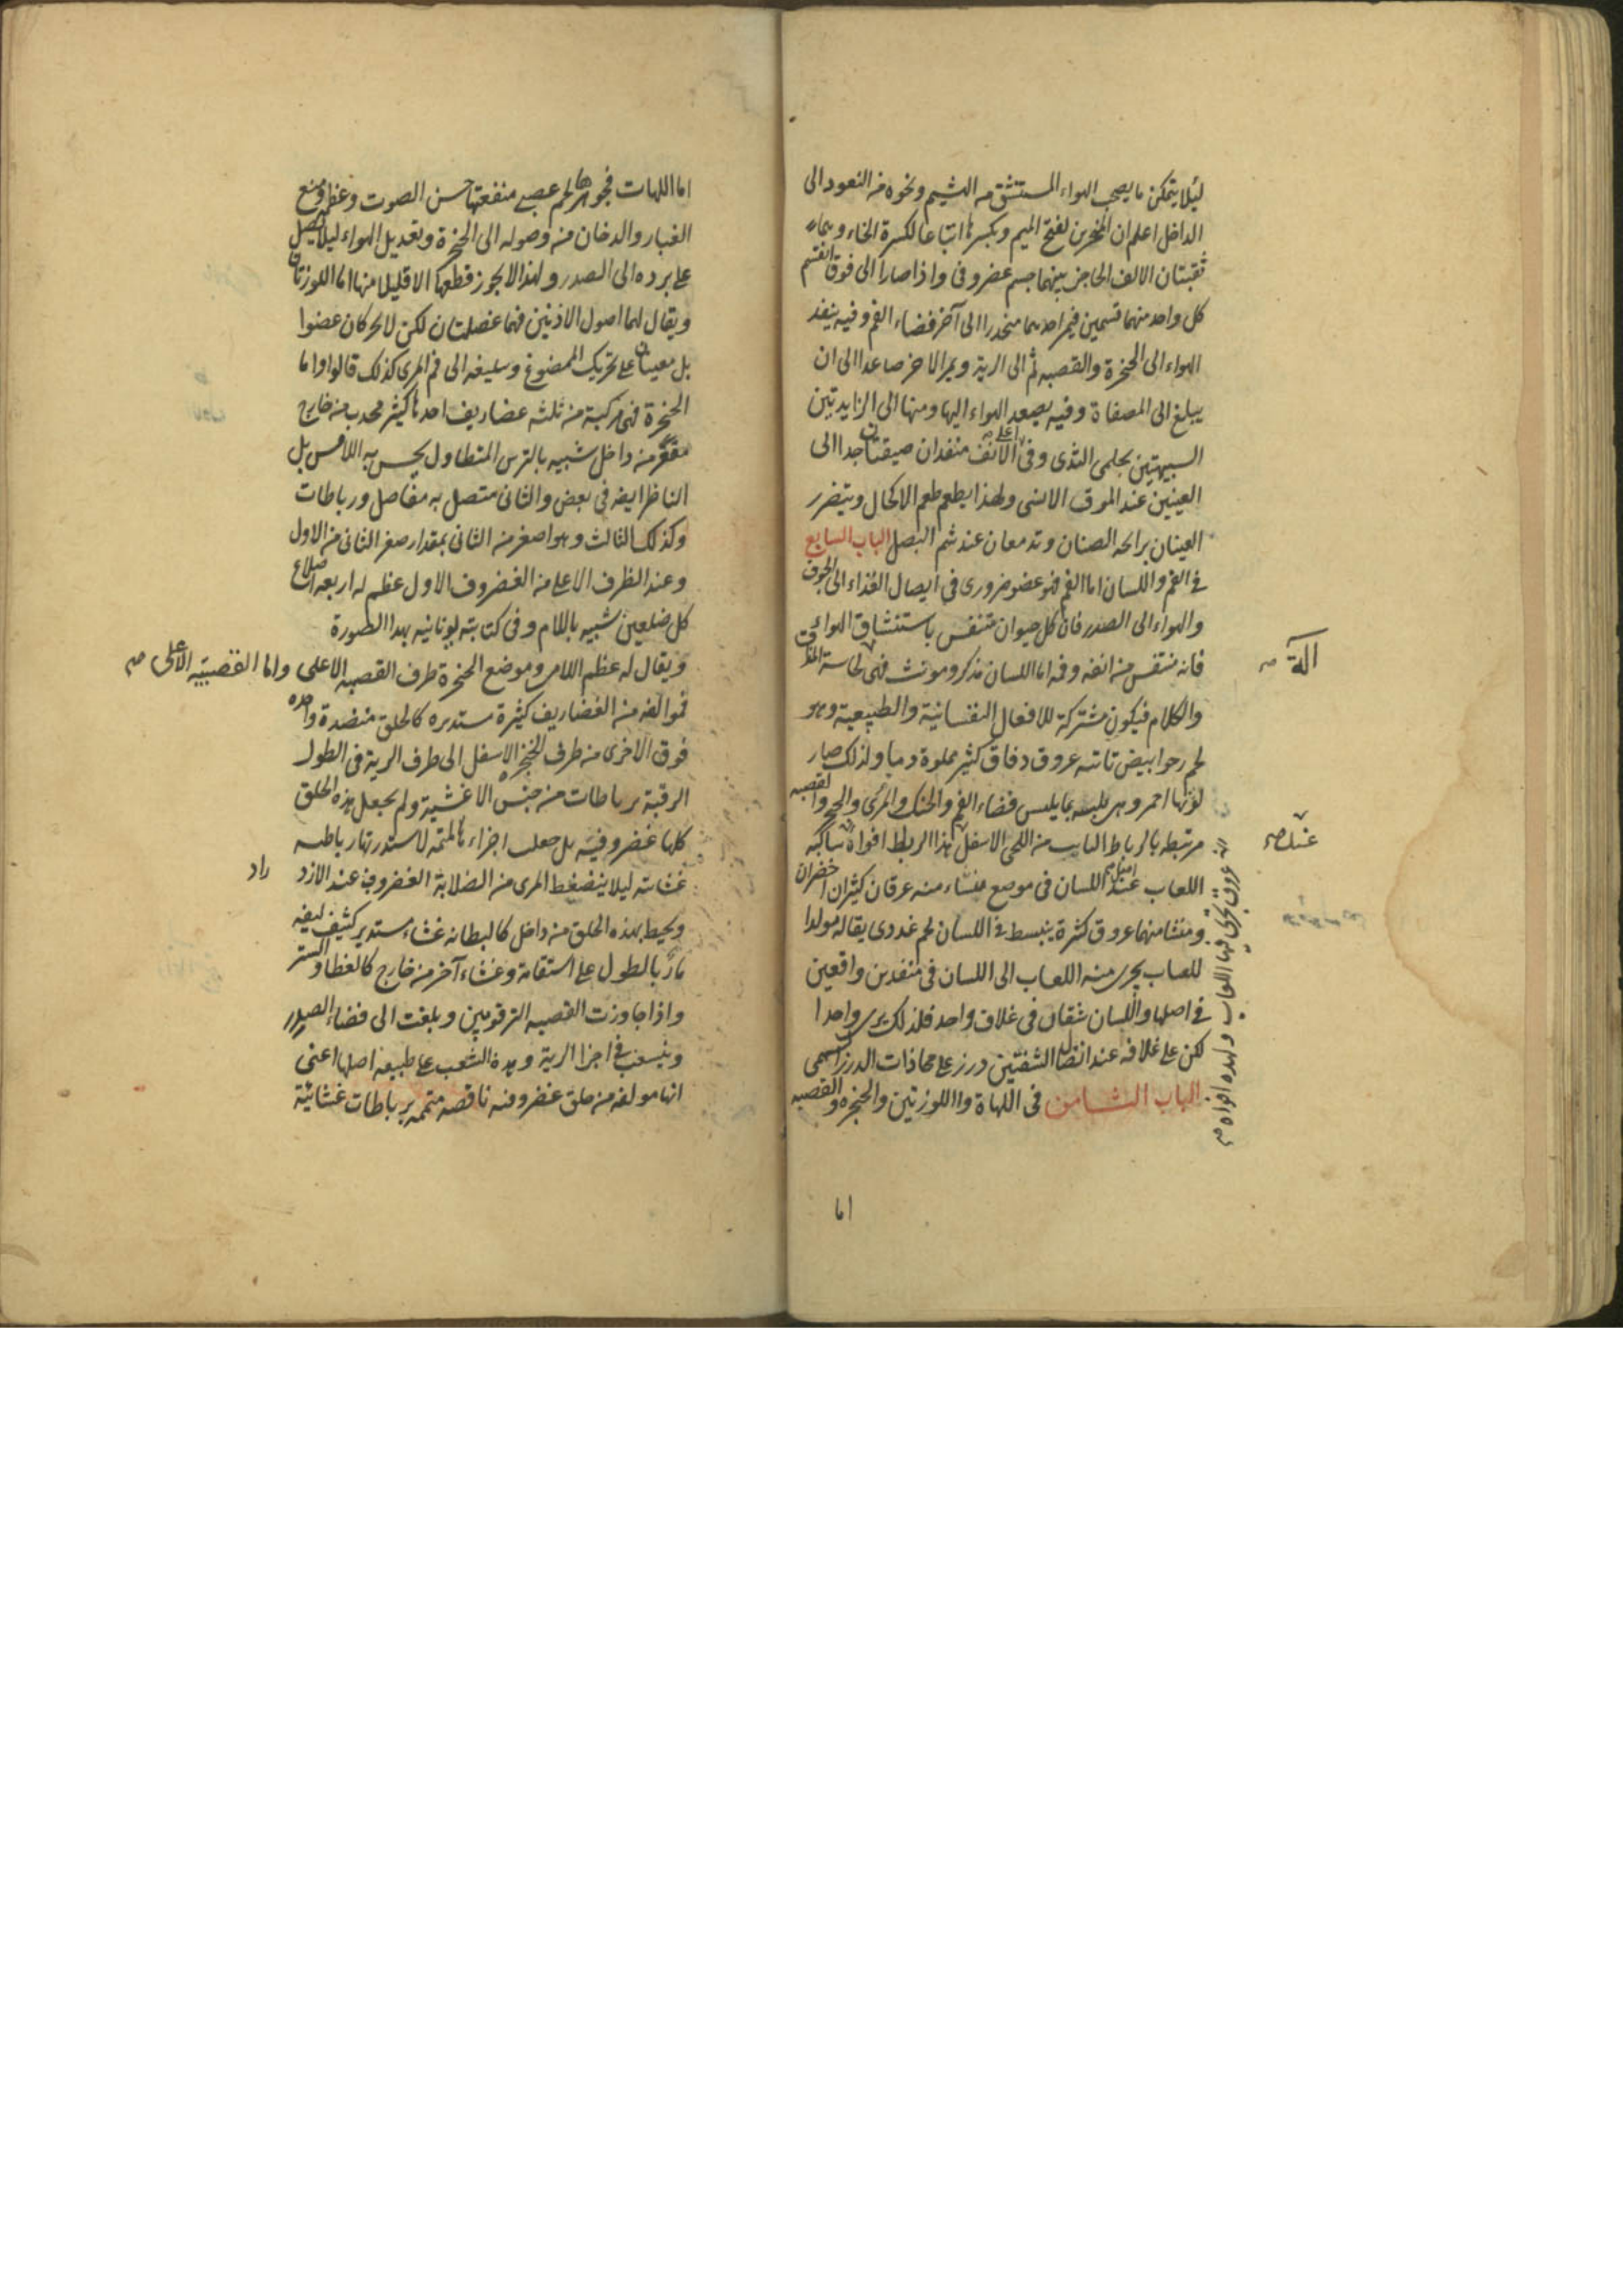 ليلا يتمكن ما يصحب الهواء المستنشق من الشيم ونحوه من النعود الى
الداخل اعلم ان المنخرين لفتح الميم وبكسرها اتباعا لكسرة الخاء وهما
ثقبتان الالف الحاجز بينهما جسم عضروفى واذا صارا الى فوق انقسم
كل واحد منهما قسمين فيمر احدهما منحدرا الى آخر فضاء الفم وفيه ينفذ
الهواء الى الحنجرة والقصبه ثم الى الرية ويمر الاخر صاعدا الى ان
يبلغ الى المصفاة وفيه يصعد الهواء اليها ومنها الى الزايدتين
الشبيهتين بحلمى الثدى وفى اعلى الانف منفدان ضيقتان جدا الى
العينين عند الموق الانسى ولهذا يطعم طعم الاكحال ويتضرر
العينان برائحه الصنان وتدمعان عند شم البصل الباب السابع
فى الفم واللسان اما الفم فهو عضو ضرورى فى ايصال الغذاء الى الجوف
والهواء الى الصدر فان كل حيوان متنفس باستنشاق الهواء
فانه متنفس من انفه وفمه اما اللسان مذكر ومونث فهى لحاسة الذوق
آلة
والكلام فيكون مشتركة للافعال النفسانية والطبيعية وهو
لحم رخو ابيض تاتته عروق دقاق كثير مملوة دما ولذلك صار
لونها احمر وهى بلبسه بما يلبس فضاء الفم والحنك والمرى والحنجره والقصبه
مرتبطه بالرباط النابت من اللحى الاسفل هذا الربط افواه ساكبه
اللعاب عند اصل اللسان فى موضع منشاء منه عرقان كثيران اخضران
ومنشا منهما عروق كثرة ينبسط فى اللسان لحم غددى يقاله مولدا
للعاب يجرى منه اللعاب الى اللسان فى منفدين واقعين
فى اصلها واللسان شقان فى غلاف واحد فلذلك يرى واحدا
لكن على غلافه عند اتصال الشفتين درز على محاذات الدرز السهمى
الباب الثامن فى اللهاة واللوزتين والحنجره والقصبه
عروق تجرى فيها اللعاب ولهذه افواه
اما
اما اللهات فجوهرها لحم عصبى منفعتها حسن الصوت وعظمه ومنع
الغبار والدخان منه وصوله الى الحنجرة وتعديل الهواء ليلا يصل
على برده الى الصدر ولهذا لا يجوز قطعها الا قليلا منها اما اللوزتان
ويقال لهما اصول الاذنين فهما عضلتان لكن لا يحركان عضوا
بل معينان على تحريك الممضوغ وسليغه الى فم المرى كذلك قالوا واما
الحنجرة فهى مركبة من ثلثه عضاريف احدها كثير محدب من خارج
مقعر من داخل شبيه بالترس المتطاول يحس به اللامس بل
الناظر ايضه فى بعض والثانى متصل به مفاصل ورباطات
وكذلك الثالث وهو اصغر من الثانى بمقدار صغر الثانى من الاول
وعند الطرف الاعلى من الغضروف الاول عظم له اربعه اضلاع
كل ضلعين شبيه باللام وفى كتابته يونانيه بهذا الصورة
ويقال له عظم اللامى وموضع الحنجرة طرف القصبه الاعلى واما القصبية الاعلى
فموالفه من الغضاريف كثيرة مستديره كالحلق منضدة واحده
فوق الاخرى من طرف الحنجره الاسفل الى طرف الرية فى الطول
الرقبة برباطات من جنس الاغشية ولم يجعل هذه الحلق
كلها غضروفية بل جعلت اجزاءها المتمه لاستدرتها رباطه
غشائه ليلا ينضغط المرى من الصلابة الغضروف عند الازد
راد
ويحيط بهذه الحلق من داخل كالبطانه غشاء مستدير كثيف ليفه
مار بالطول على استقامة وغشاء آخر من خارج كالغطا والستر
واذا جاوزت القصبه الترقويين وبلغت الى فضاء الصدر
وينسعب فى اجزا الرية وهذه الشعب على طبيعه اصلها اعنى
انها مولفه من حلق غضروفيه ناقصه متممه برباطات غشائية